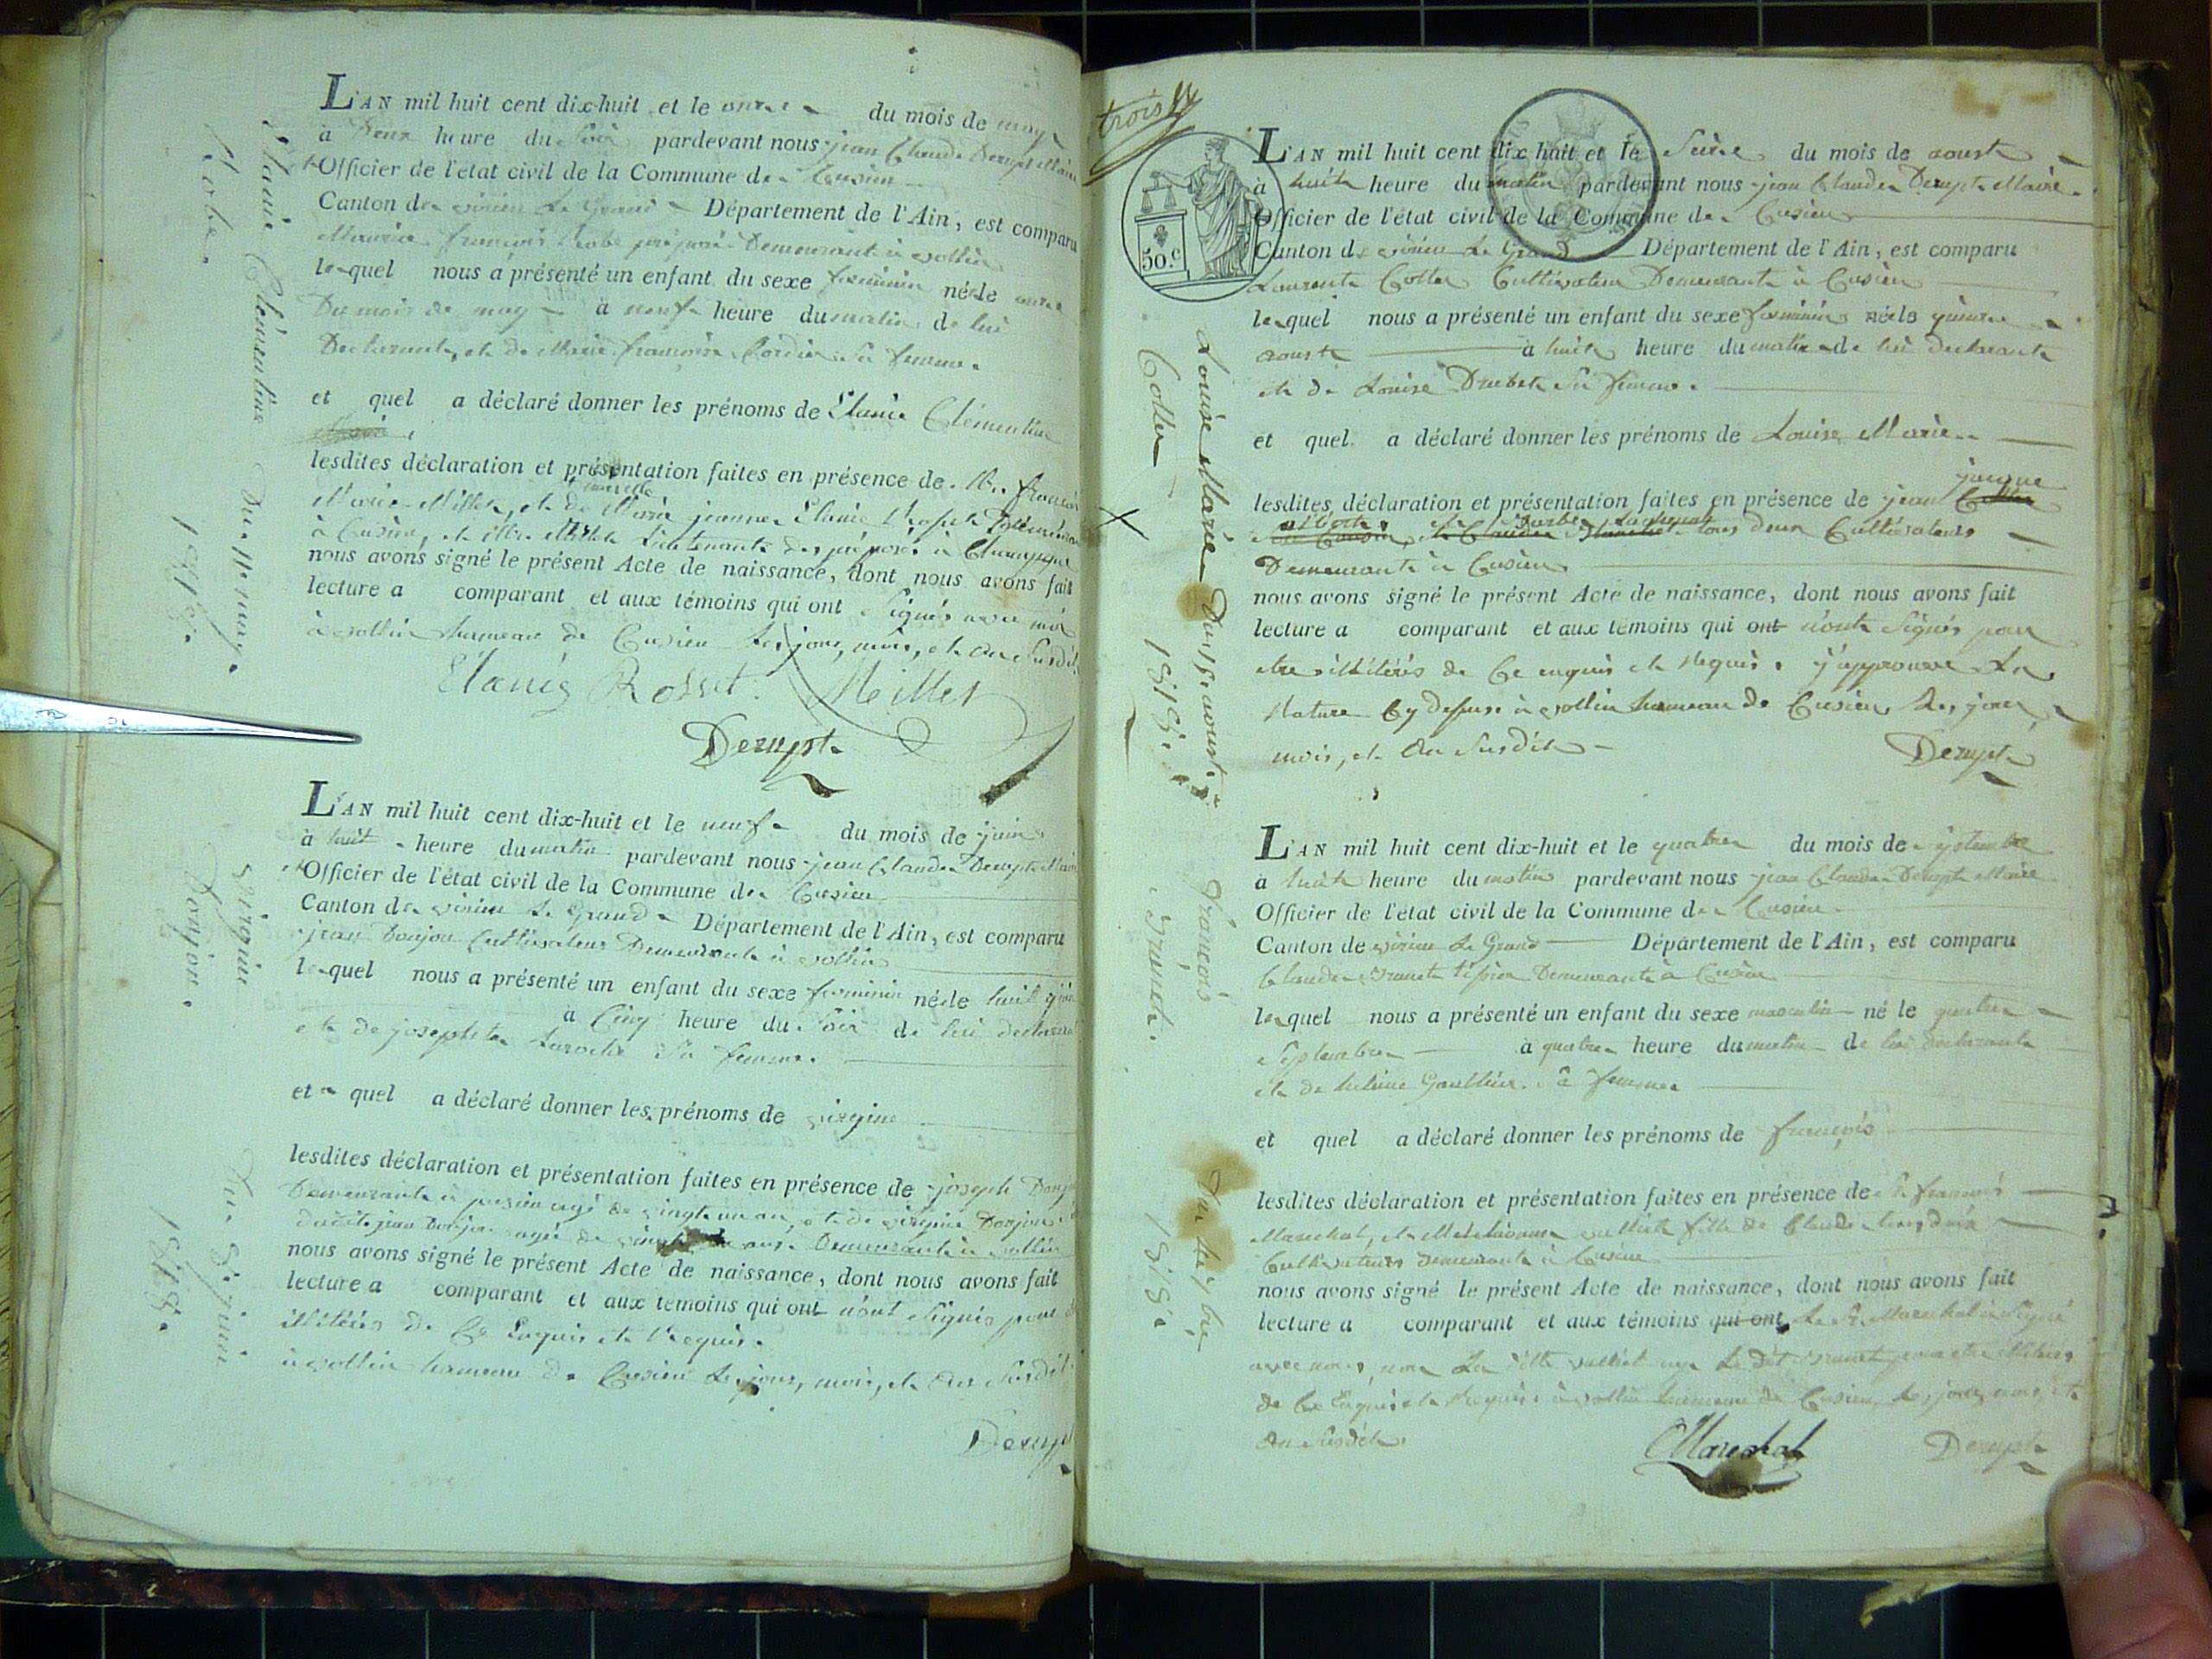 L'AN mil huit cent dix-huit et le onze du mois de may
à Deux heure du Soir pardevant nous jean Claude Derupt Maire
Officier de l'état civil de la Commune de Cusieu
Canton de virieu Le Grand Département de l'Ain, est comparu
Maurice françois préposé Demeurant à vollien
lequel nous a présenté un enfant du sexe feminin née le onze
Du mois de may à neuf heure du matin de lui
Declarant, et de Marie françoise Cordier Sa femme.
et quel a déclaré donner les prénoms de Etanie Clémentine
lesdites déclaration et présentation faites en présence de
Marie jeanne Etanie
à Cusieu, et Lieutenant des préposés à Champagne
nous avons signé le présent Acte de naissance, dont nous avons fait
lecture a comparant et aux témoins qui ont Signés avec moi
à vollien hameau de Cusieu Les jour, mois, et An Susdit
Etanié Rosset. Millet
Derupt
Etanie Clémentine Du 11 e may.
1818.
L'AN mil huit cent dix-huit et le neuf du mois de juin
à huit heure du matin pardevant nous jean Claude Derupt Maire
Officier de l'état civil de la Commune de Cusieu
Canton de virieu Le Grand Département de l'Ain, est comparu
jean Donjon Cultivateur Demeurant à vollien
lequel nous a présenté un enfant du sexe feminin née le huit juin
à Cinq heure du Soir de lui declarant
et de josephte Laroche Sa femme.
et quel a déclaré donner les prénoms de virginie
lesdites déclaration et présentation faites en présence de joseph
Demeurant à agé de vingt un an, et de virginie Donjon
dudit jean Donjon agée de ans Demeurant à vollien
nous avons signé le présent Acte de naissance, dont nous avons fait
lecture a comparant et aux temoins qui ont n'ont Signés pour
illitérés de Ce Enquis et Requis.
à vollien hameau de Cusieu Les jour, mois, et An Susdit
Derupt
virginie Donjon.
Du 8. juin
1818.
trois
50.c
L'AN mil huit cent dix huit et le Seize du mois de aoust
à huit heure du matin pardevant nous jean Claude Derupt Maire
Officier de l'état civil de la Commune de Cusieu
Canton de virieu Le Grand Département de l'Ain, est comparu
Laurent Collet Cultivateur Demeurant à Cusieu
lequel nous a présenté un enfant du sexe feminin née le quinze
aoust à huit heure du matin de lui declarant
et de Louise Drubet Sa femme.
et quel a déclaré donner les prénoms de Louise Marie
jacque
lesdites déclaration et présentation faites en présence de jean
tous deux Cultivateurs
Demeurant à Cusieu
nous avons signé le présent Acte de naissance, dont nous avons fait
lecture a comparant et aux témoins qui ont n'ont Signés pour
etre illitérés de Ce enquis et Requis. j'approuve La
Rature Cy dessus à vollien hameau de Cusieu Les jour,
mois, et An Susdit
Derupt
Louise Marie Du 15 e aoust
Collet 1818.
L'AN mil huit cent dix-huit et le quatre du mois de Septembre
à huit heure du matin pardevant nous jean Claude Derupt Maire
Officier de l'état civil de la Commune de Cusieu
Canton de virieu Le Grand Département de l'Ain, est comparu
Claude tissier Demeurant à Cusieu
lequel nous a présenté un enfant du sexe masculin né le quatre
Septembre à quatre heure du matin de lui declarant
et de Gauthier Sa femme
et quel a déclaré donner les prénoms de françois
lesdites déclaration et présentation faites en présence de Sr françois
Marechal, et fille de Claude tous deux
Cultivateurs demeurant à Cusieu
nous avons signé le présent Acte de naissance, dont nous avons fait
lecture a comparant et aux témoins qui ont Le Sr Marechal a Signé
avec nous, non La ditte pour etre illitérés
de Ce Enquis et Requis à vollien hameau de Cusieu, Les jour, mois, et
An Susdit
Marechal Derupt
François
Du 4 e 7 bre
1818.